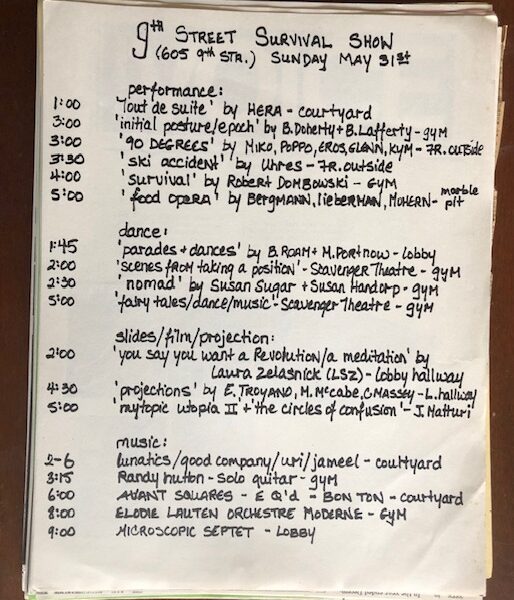 9th STREET SURVIVAL SHOW
(605 9th STR.) SUNDAY MAY 31st
performance:
1:00 'Tout de suite' by HERA - courtyard
3:00 'initial posture/epoch' by B.Doherty + B.Lafferty - gym
3:00 '90 DEGREES' by MIKO, POPPO, EROS, GLENN, KYM - 7R. outside
3:30 'ski accident' by Uhres - 7R. outside
4:00 'survival' by Robert DOMBOWSKI - GYM
5:00 'food OPERA' by BERGMANN, lieberman, MOHERN - marble pit
dance:
1:45 'parades + dances' by B.ROAM + M.PORTNOW - lobby
2:00 'scenes from taking a position' - Scavenger Theatre - gym
2:30 'nomad' by Susan Sugar + Susan Handorp - gym
5:00 'fairy tales/dance/music' - Scavenger Theatre - gym
slides/film/projection:
2:00 'you say you want a Revolution/a meditation' by
Laura Zelasnick (LSZ) - lobby hallway
4:30 'projections' by E. TROYANO, M. McCabe, C MASSEY - L. hallway
5:00 'mytopic utopia II' + 'the circles of confusion' - J. Matturi
music:
2-6 lunatics/good company/uri/jameel - courtyard
3:15 Randy hutton - solo guitar - gym
6:00 AVANT SQUARES - E Q'd - BON TON - courtyard
8:00 ELODIE LAUTEN ORCHESTRE MODERNE - GYM
9:00 MICROSCOPIC SEPTET - LOBBY